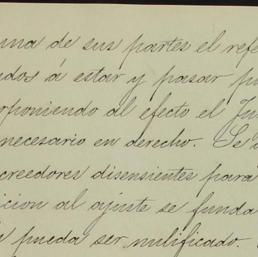 una de sus partes el refe
ados á estar y pasar p
rponiendo al efecto el Ju
necesario en derecho. Se
creedores disensientes para
icion al ajuste se funda
pueda ser nulificado.